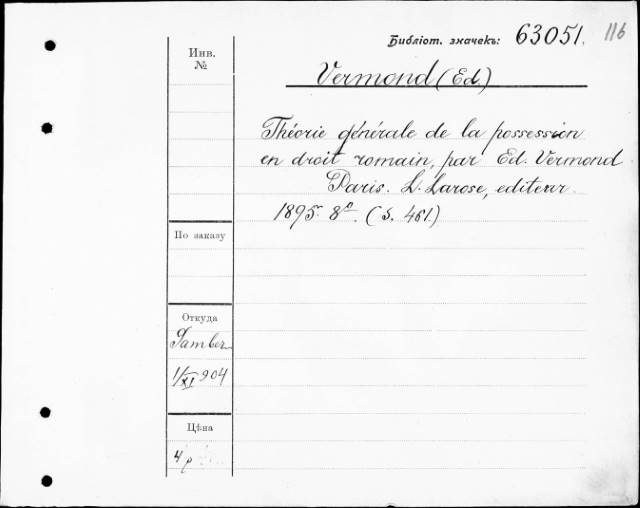 Библіот. значекъ: 63051. 116
Инв.
№
Vermond (Ed.)
Théorie générale de la possession
en droit romain, par Ed. Vermond
Paris. L. Larose, editeur.
1895. 8º. (S. 461.)
По заказу
Откуда
1/XI 904
Цѣна
4 р